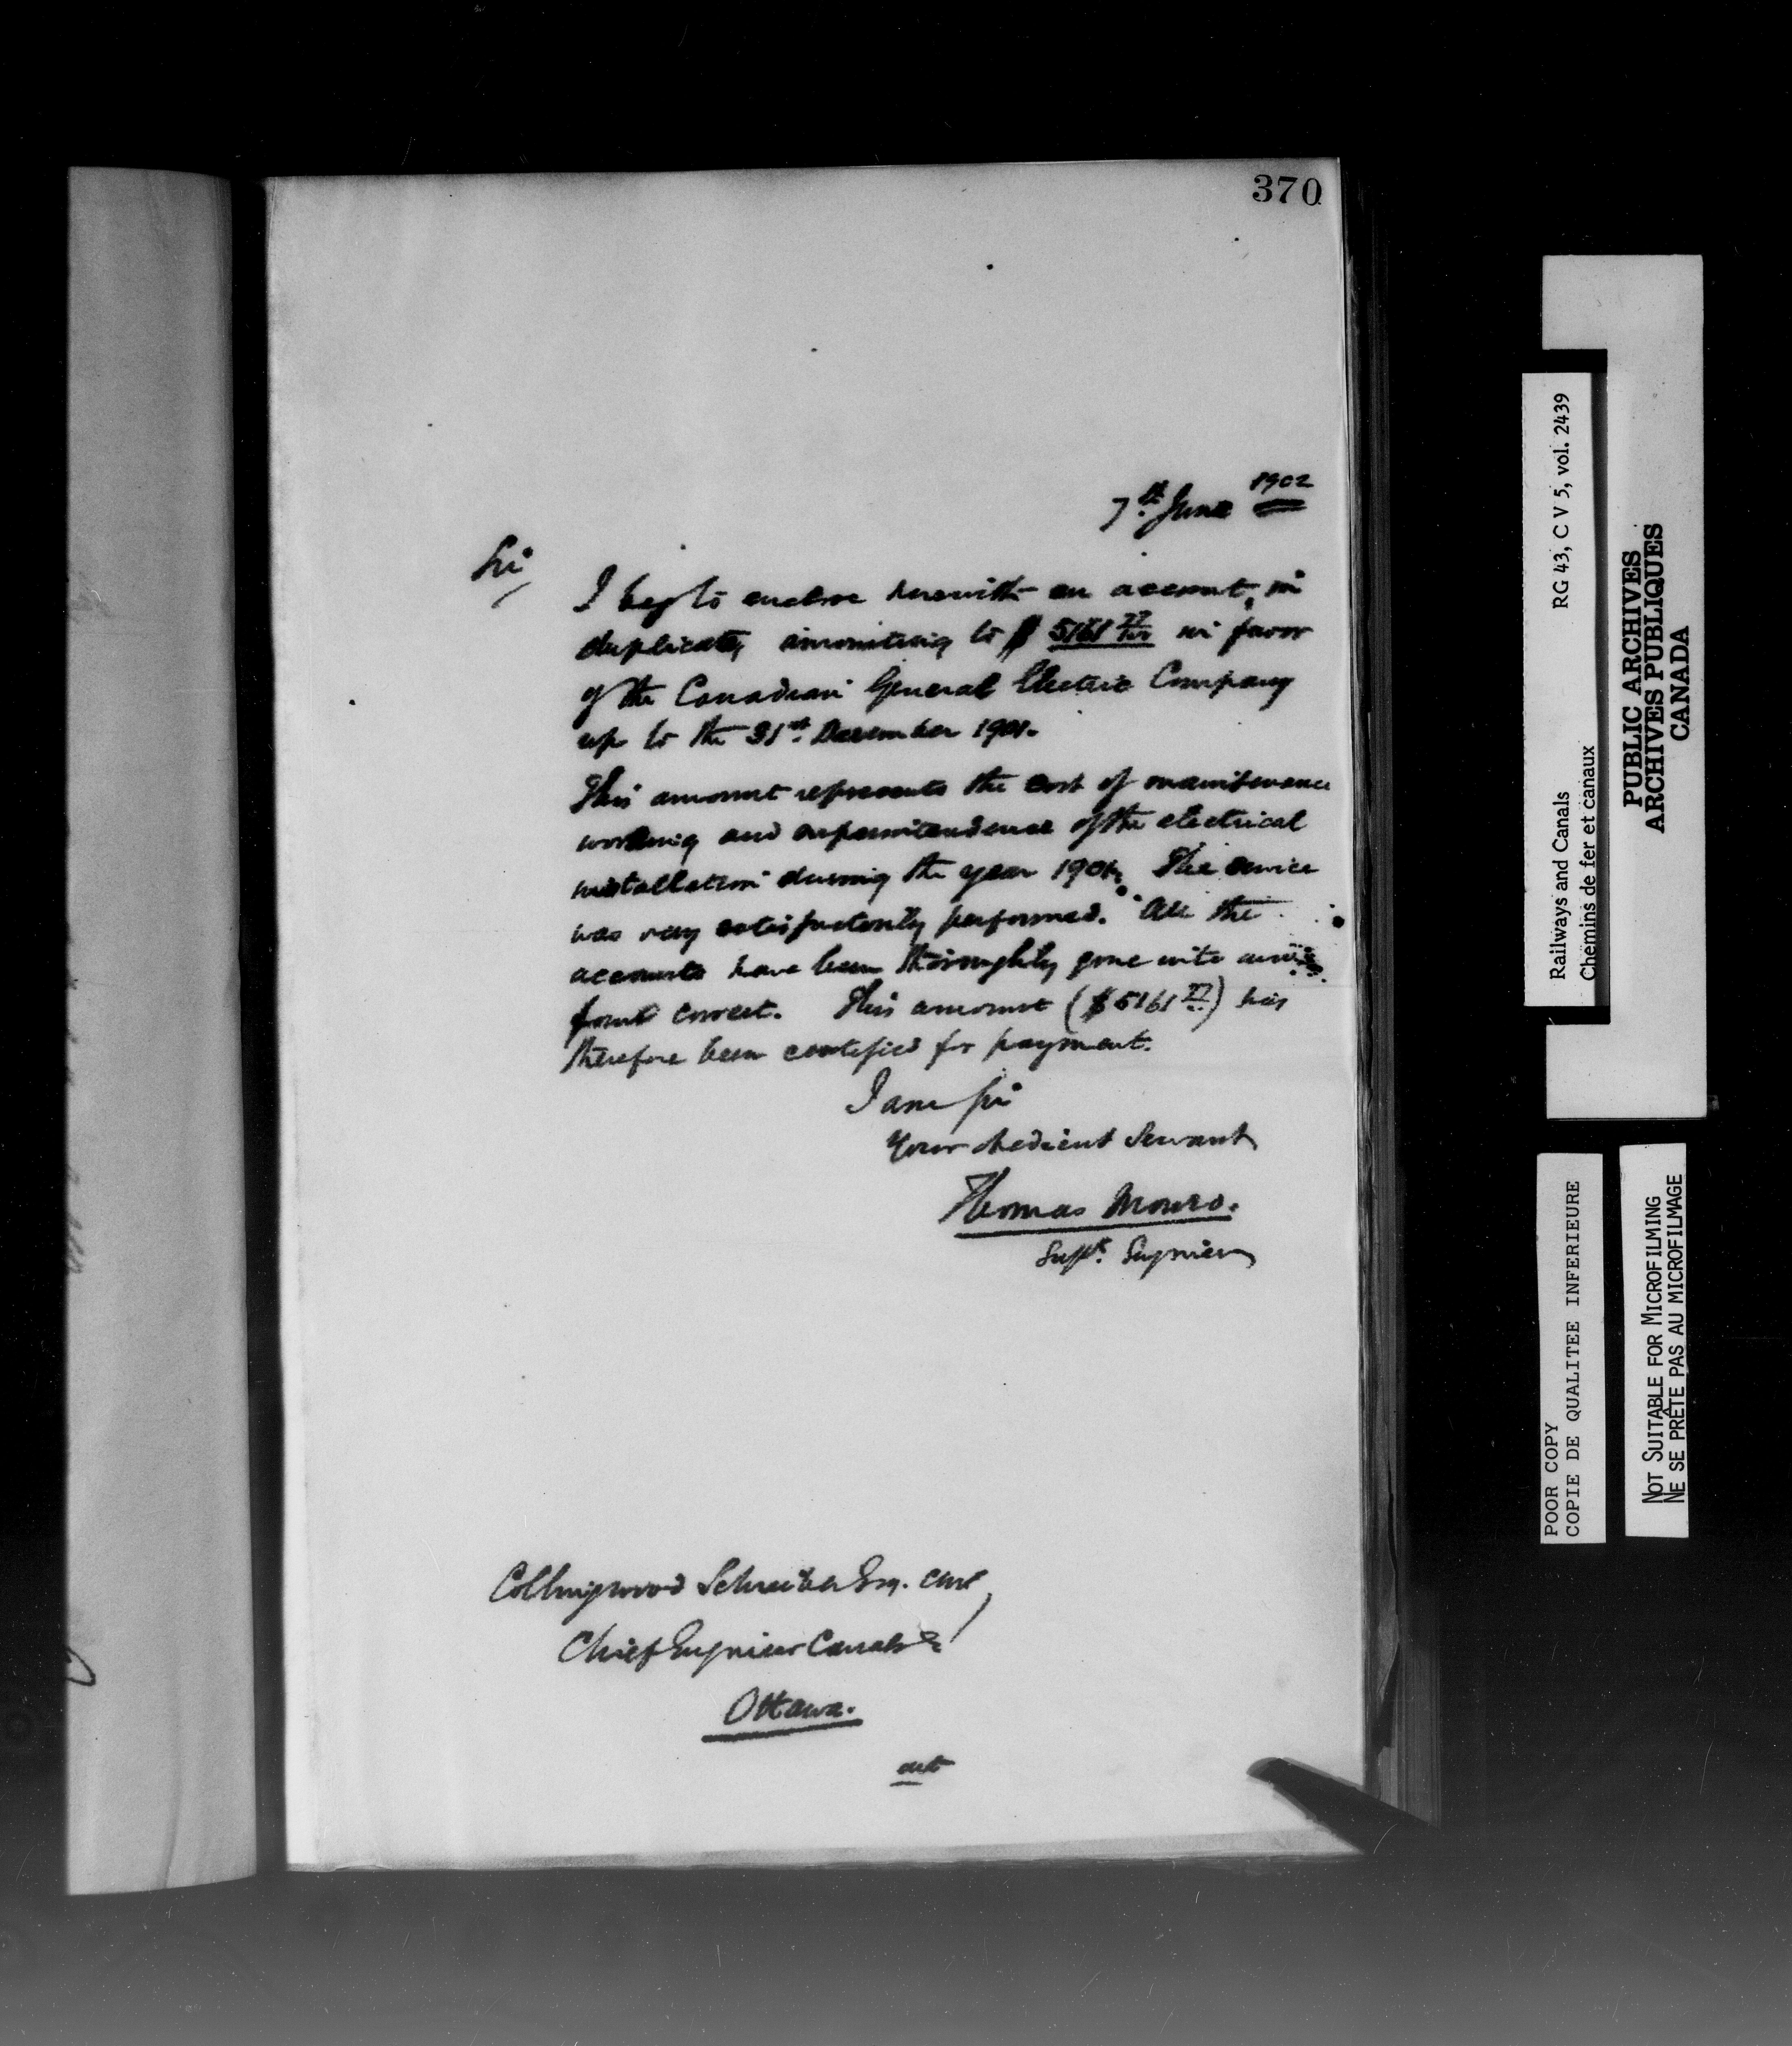 370
7th June 1902
Sir
I beg to enclose herewith an account, in
duplicate, amounting to $ 5161 77/100 in favor
of the Canadian General Electric Company
up to the 31st December 1901.
This amount represents the cost of maintenance
working and superintendence of the electrical
installation during the year 1901. The service
was very satisfactorily performed. All the
accounts have been thoroughly gone into and
found correct. This amount ($5161 77) has
therefore been certified for payment.
I am Sir
Your obedient Servant
Thomas Monro.
Supt. Engineer
Collingwood Schreiber Esq. CMG
Chief Engineer Canals &c
Ottawa.
Railways and Canals RG 43, C V 5, vol. 2439
Chemins de fer et canaux
PUBLIC ARCHIVES
ARCHIVES PUBLIQUES
CANADA
POOR COPY
COPIE DE QUALITEE INFERIEURE
NOT SUITABLE FOR MICROFILMING
NE SE PRÊTE PAS AU MICROFILMAGE